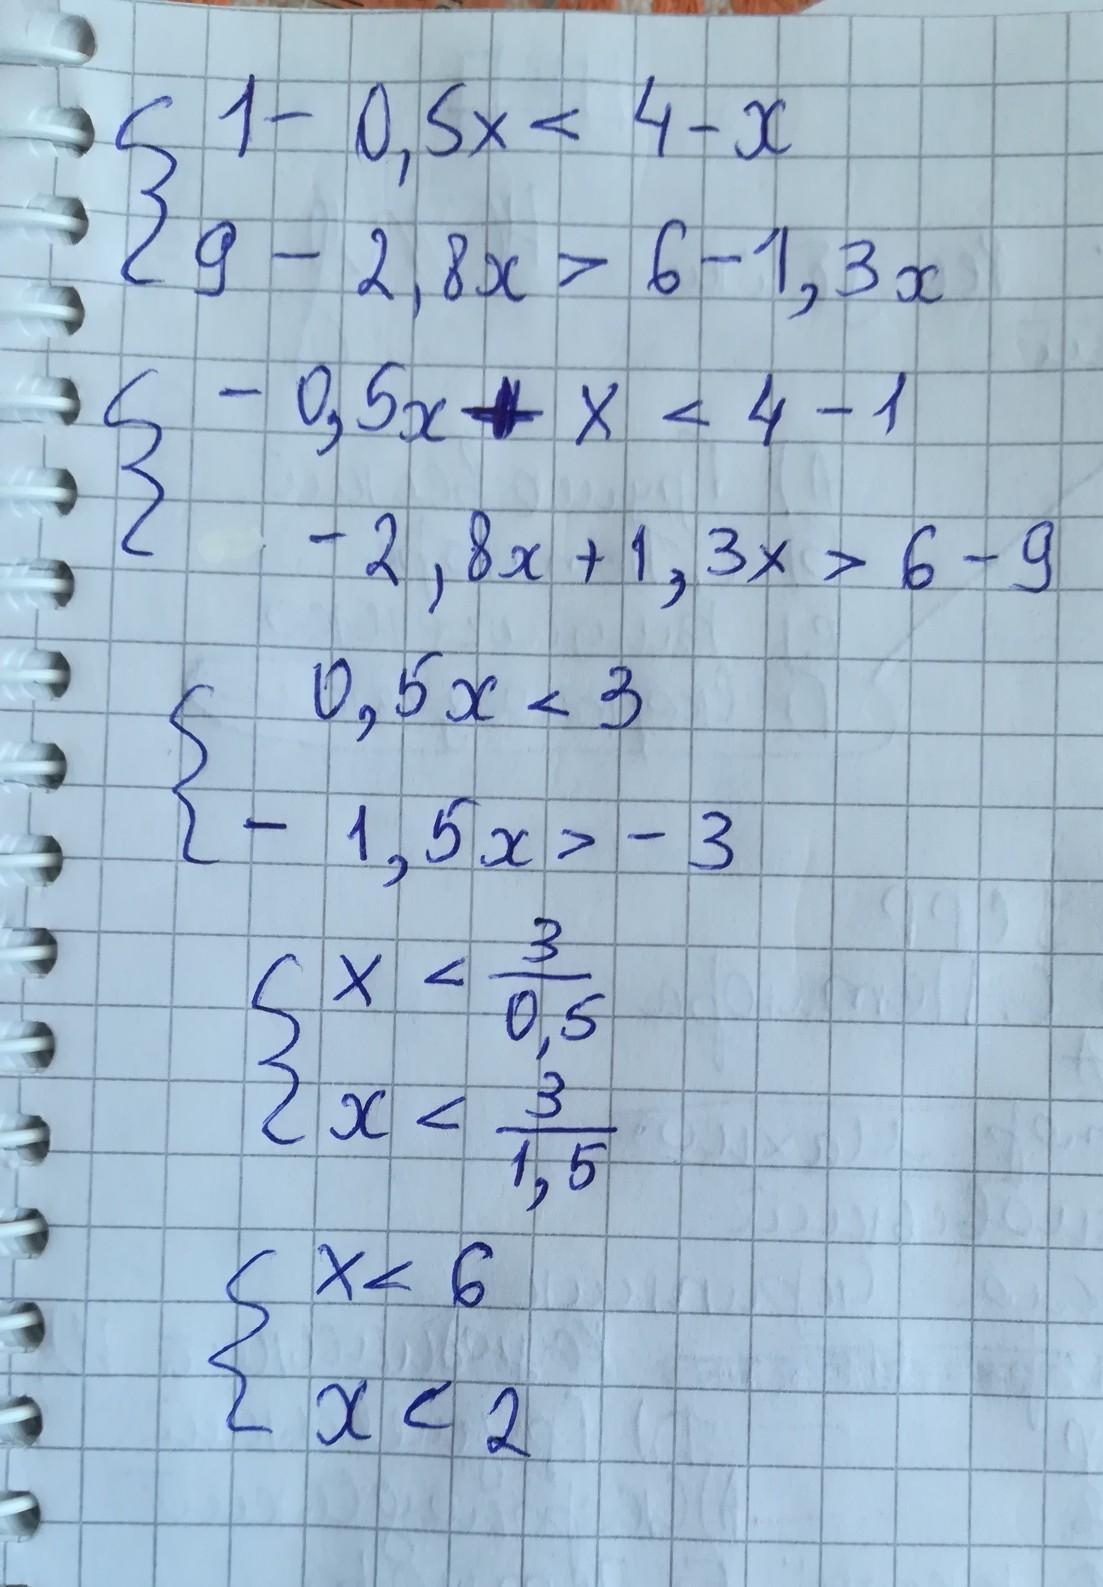 1 - 0,5x < 4 - x
9 - 2,8x > 6 - 1,3x
- 0,5x + x < 4 - 1
- 2,8x + 1,3x > 6 - 9
0,5x < 3
- 1,5x > - 3
x < 3/0,5
x < 3/1,5
x < 6
x < 2